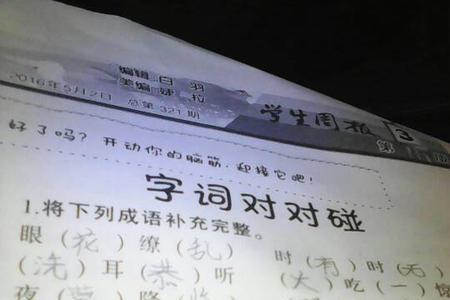 编辑 白羽
美编 婕拉
2016年5月12日 总第321期
学生周报 3
第 期
好了吗?开动你的脑筋,迎接它吧!
字词对对碰
1.将下列成语补充完整。
眼(花)缭(乱) 时(有)时(无)
(洗)耳(恭)听 (大)吃(一)惊
夜